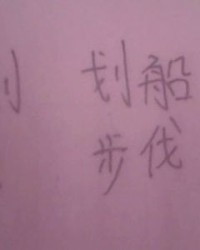 划船
步伐